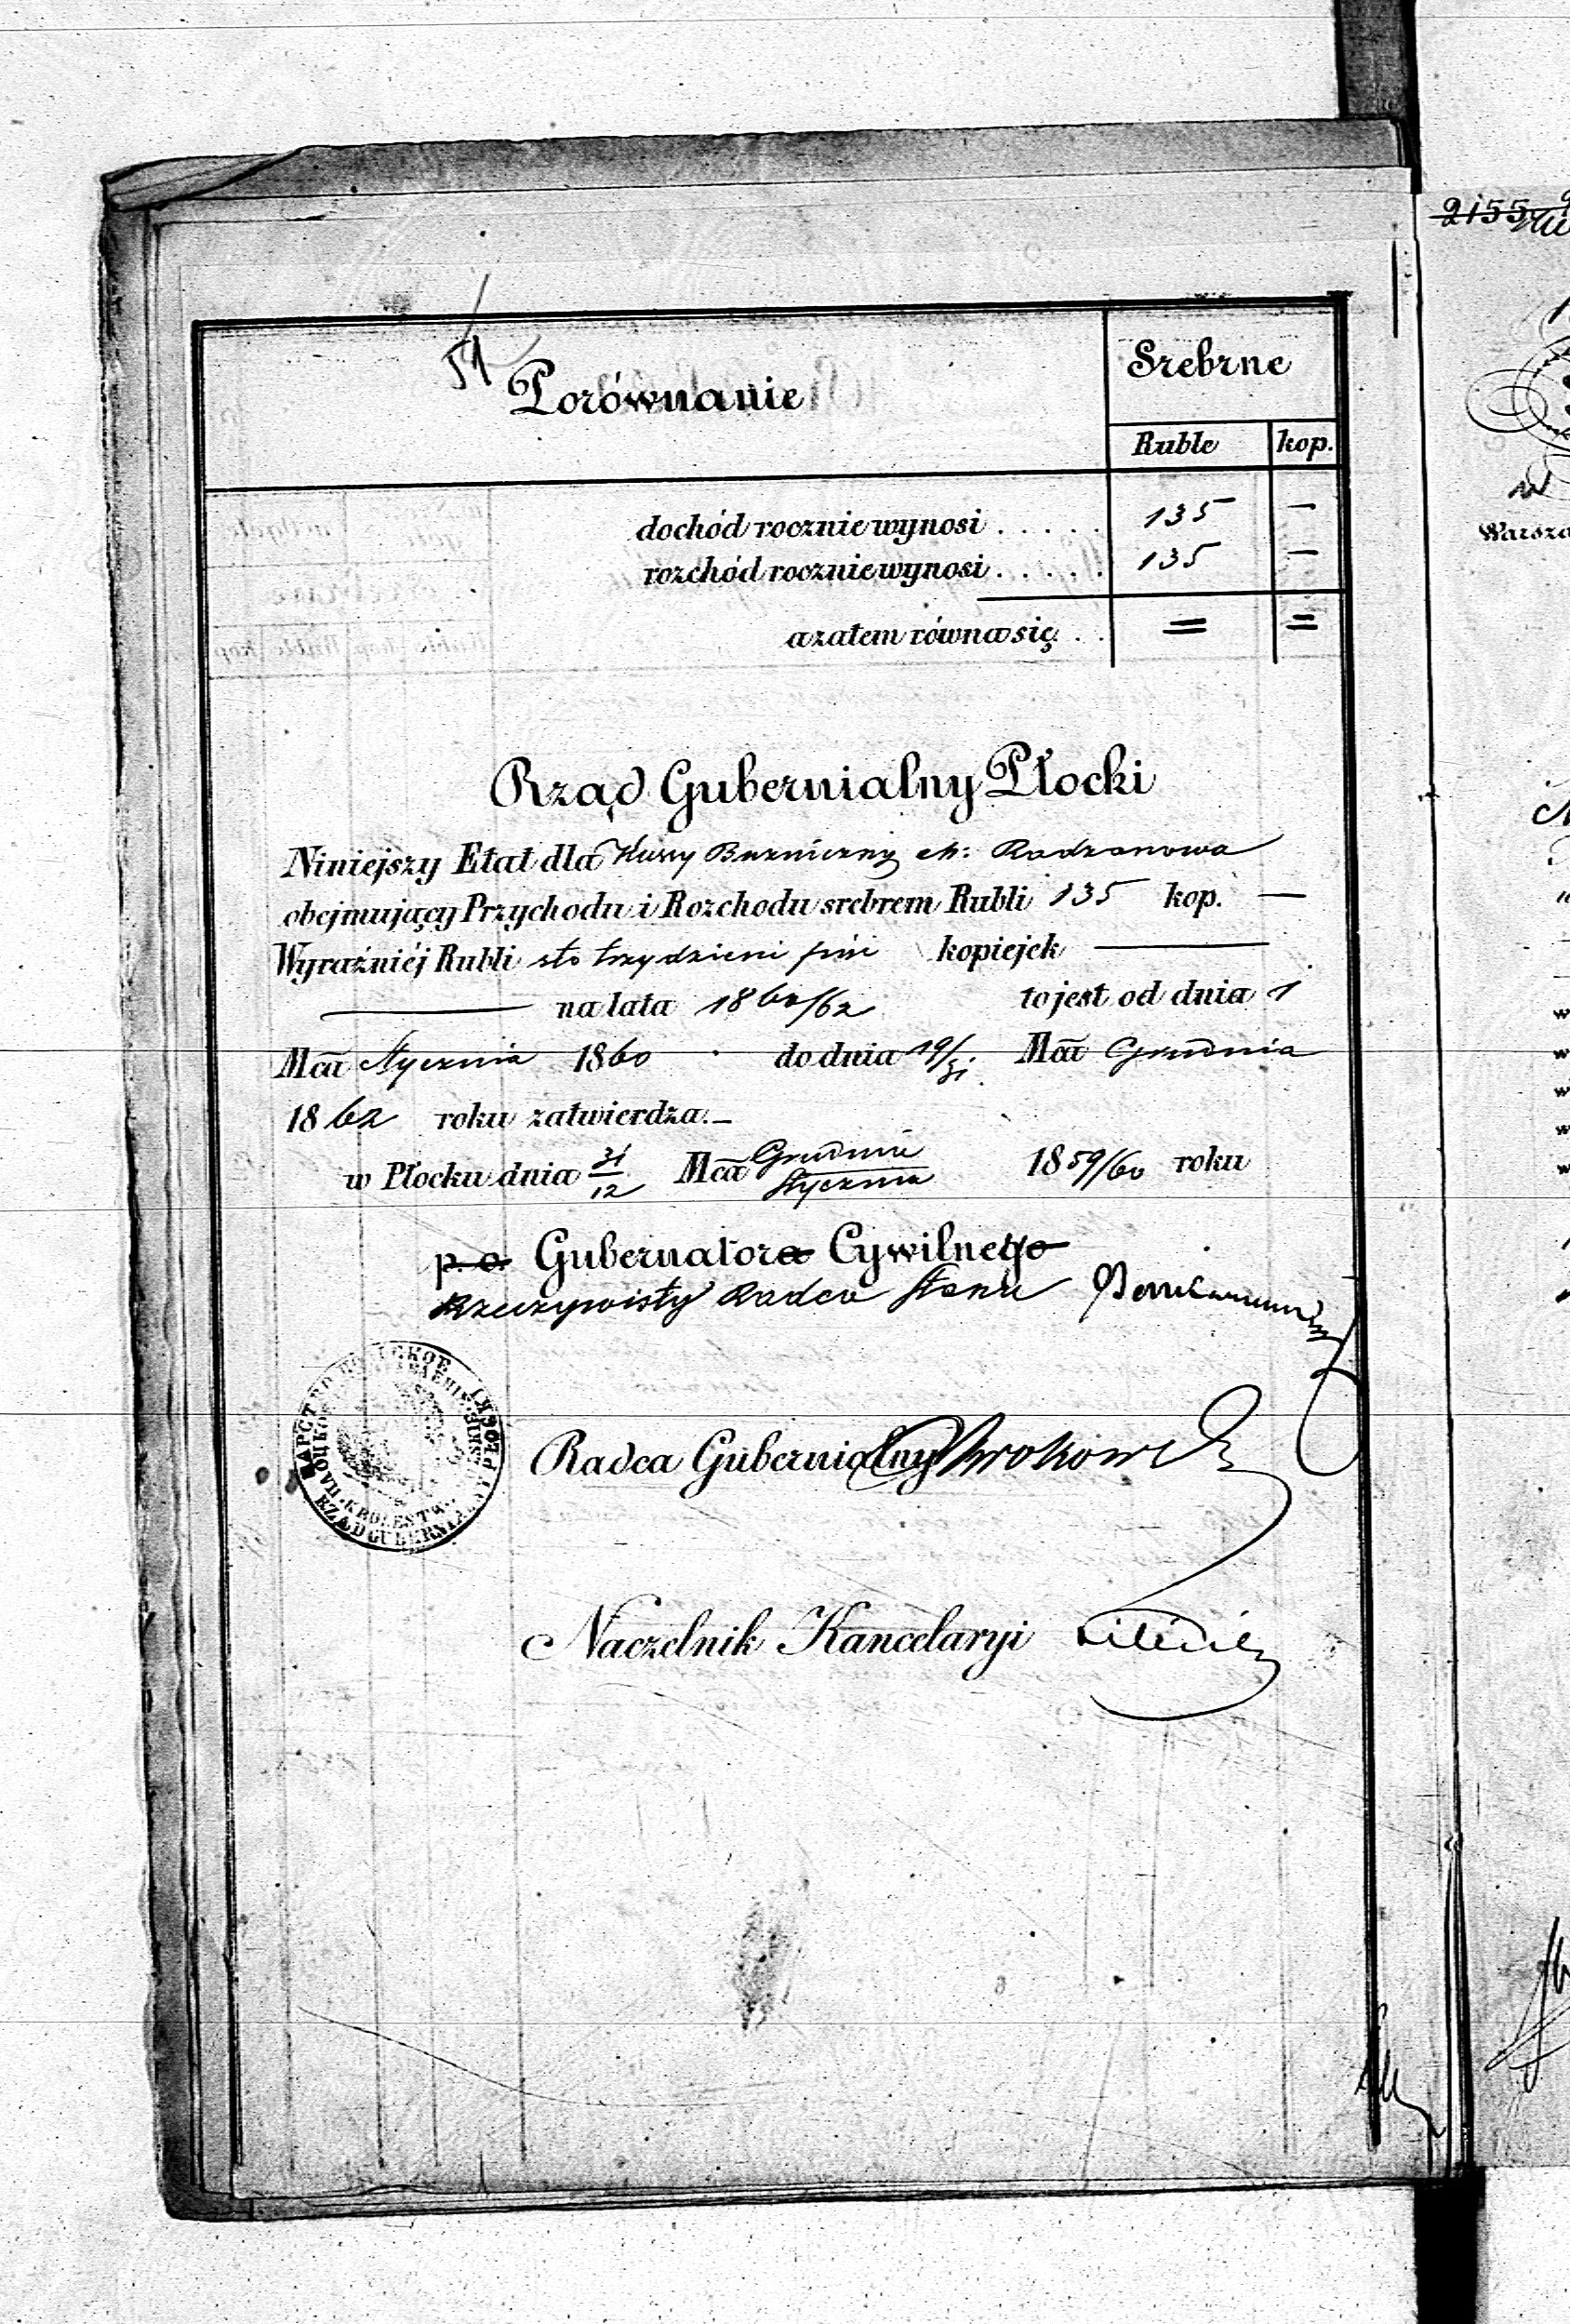 2155
51
Porównanie
Srebrne
Ruble kop.
dochód rocznie wynosi ..... 135 —
rozchód rocznie wynosi ..... 135 —
a zatem równa się .. = =
Rząd Gubernialny Płocki
Niniejszy Etat dla Kassy Bużniczny m: Radzanowa
obejmujący Przychodu i Rozchodu srebrem Rubli 135 kop. —
Wyraźniéj Rubli sto trzydzieści pięć kopiejek —
— na lata 1860/62 to jest od dnia 1
Mca Stycznia 1860 do dnia 19/31 Mca Grudnia
1862 roku zatwierdza.—
w Płocku dnia 31/12 Mca Grudnia/Stycznia 1859/60 roku
p. o. Gubernatora Cywilnego
Rzeczywisty Radca Stanu
Radca Gubernialny
Naczelnik Kancelaryi
RZĄD GUBERNIALNY PŁOCKI
Warsza